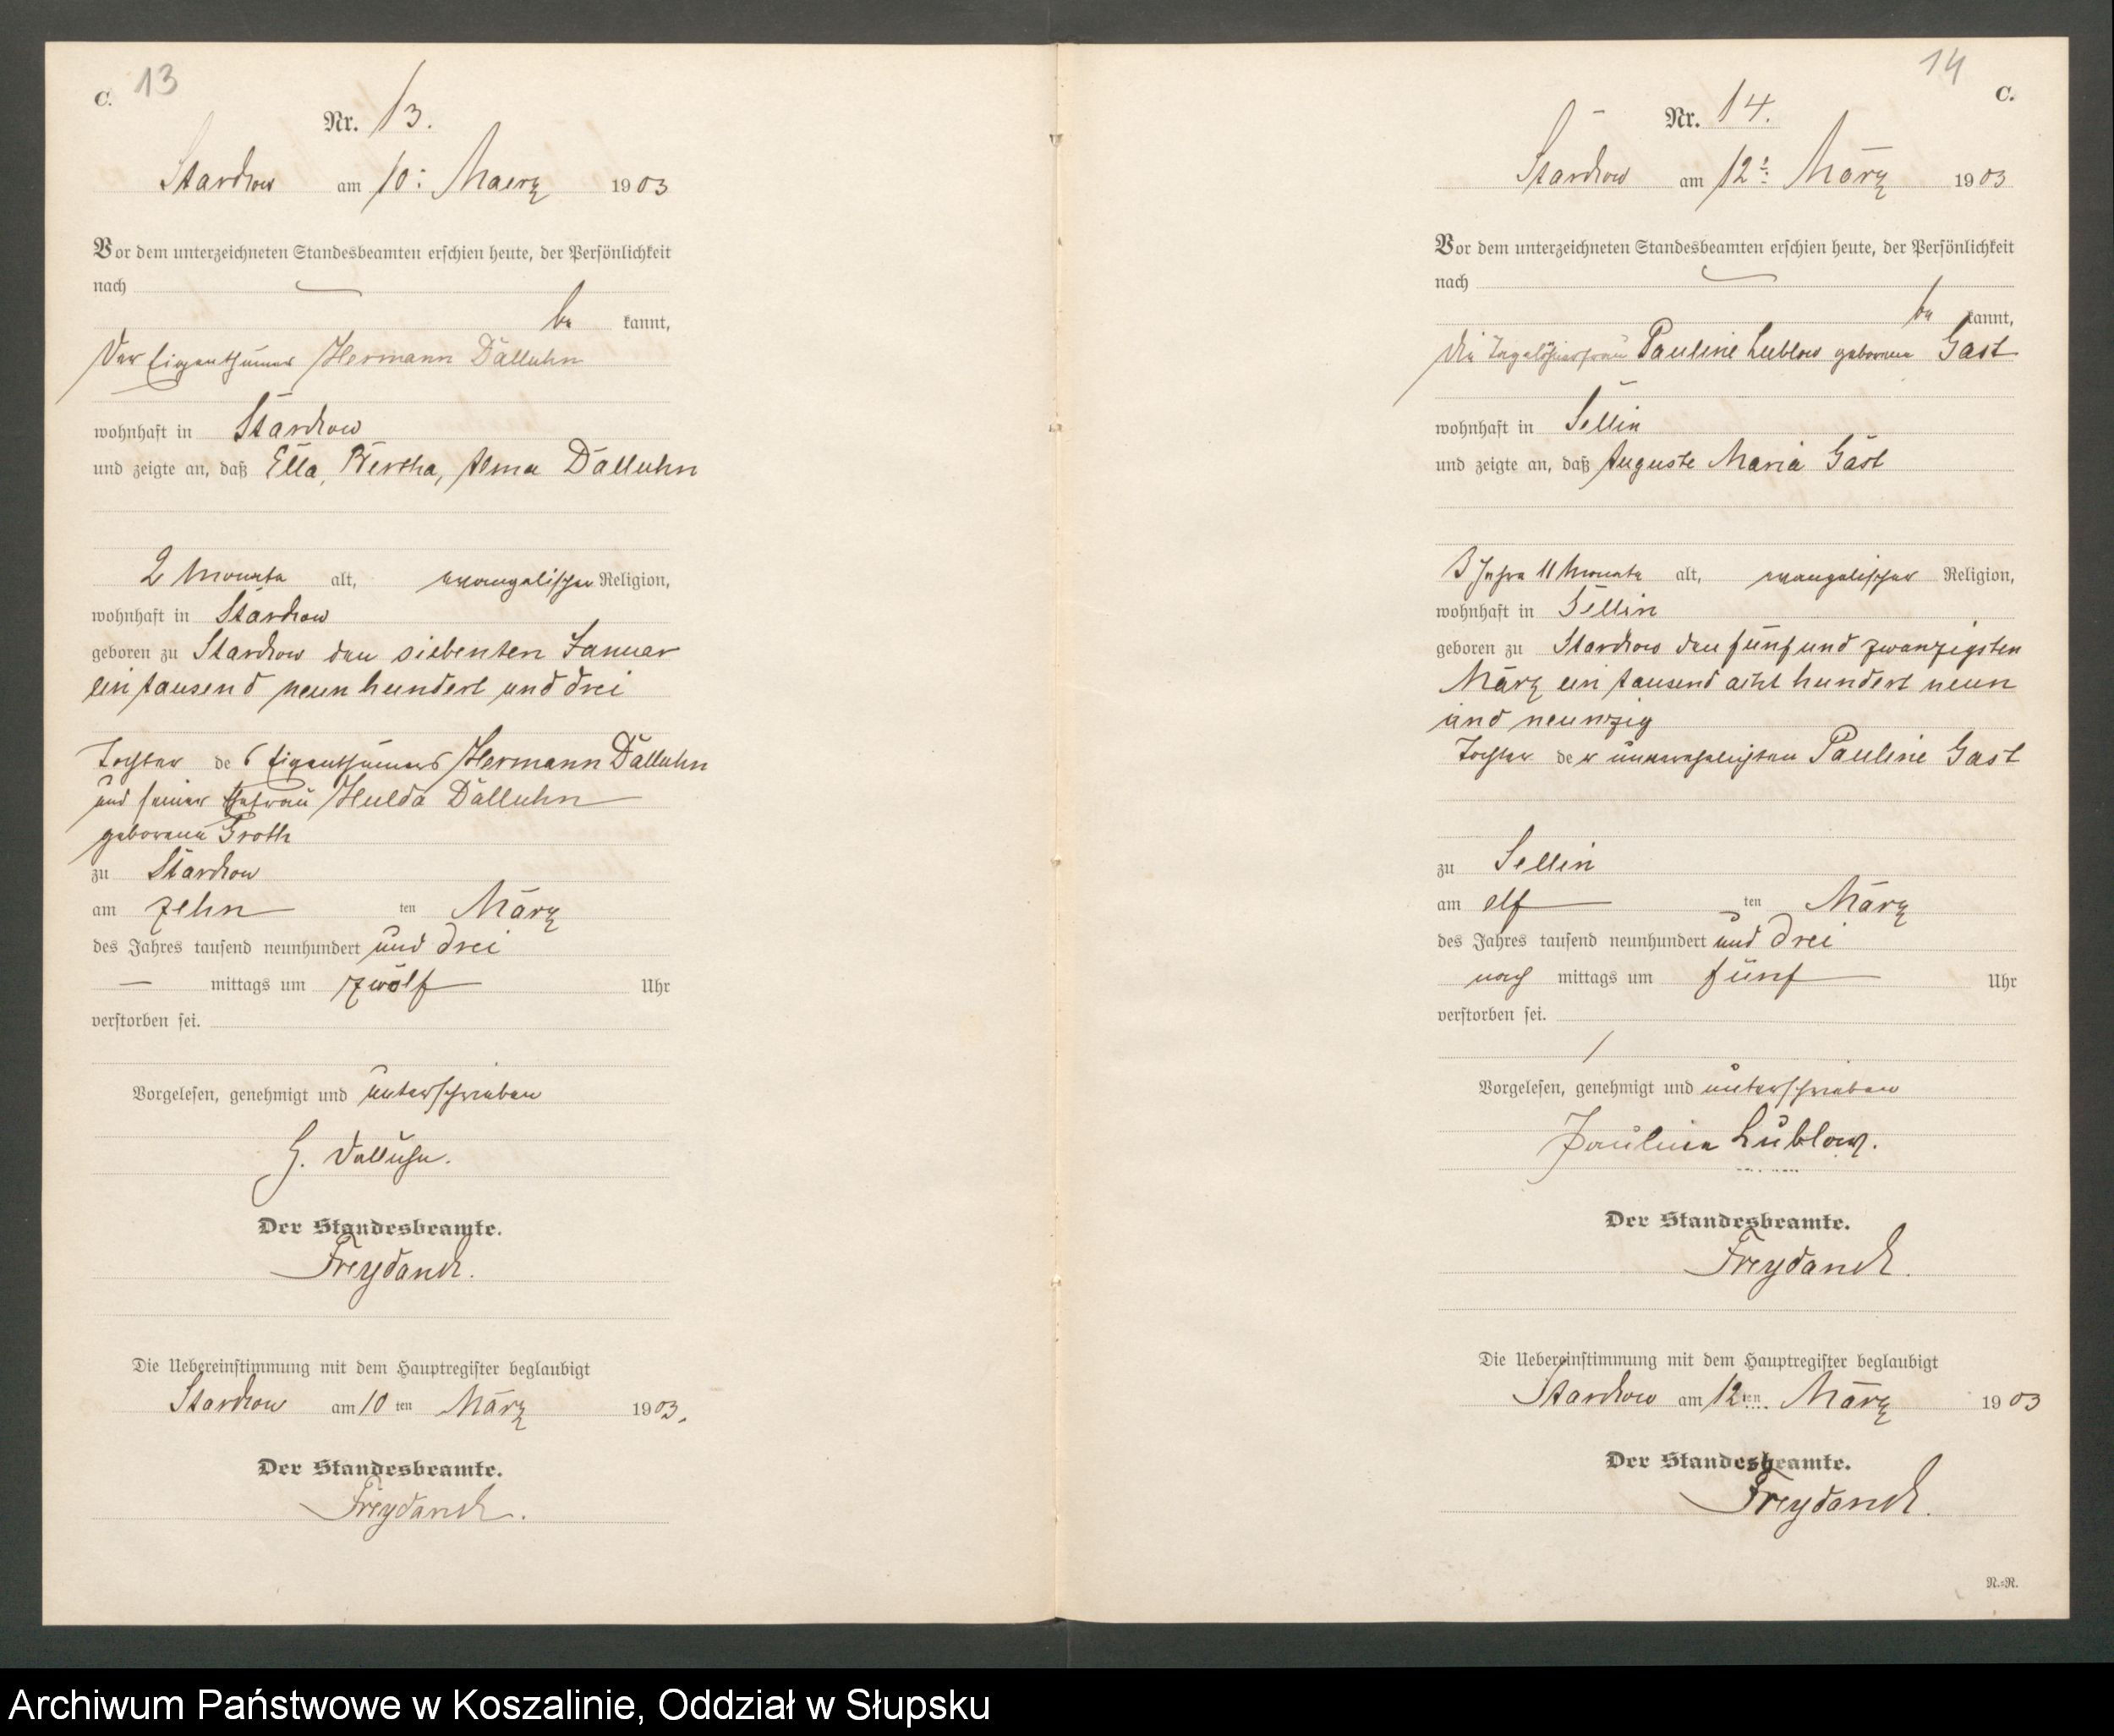 C. 13
Nr. 13.
Starckow am 10: Maerz 1903
Vor dem unterzeichneten Standesbeamten erschien heute, der Persönlichkeit
nach
be kannt,
Der Eigenthümer Hermann Dalluhn
wohnhaft in Starckow
und zeigte an, daß Ella, Bertha, Alma Dalluhn
2 Monate alt, evangelischer Religion,
wohnhaft in Starckow
geboren zu Starckow den siebenten Januar
ein tausend neun hundert und drei
Tochter des Eigenthümers Hermann Dalluhn
und seiner Ehefrau Hulda Dalluhn
geborene Groth
zu Starckow
am zehn ten März
des Jahres tausend neunhundert und drei
— mittags um zwölf Uhr
verstorben sei.
Vorgelesen, genehmigt und unterschrieben
H. Dalluhn.
Der Standesbeamte.
Freydanck.
Die Uebereinstimmung mit dem Hauptregister beglaubigt
Starckow am 10 ten März 1903.
Der Standesbeamte.
Freydanck.
14 C.
Nr. 14.
Starckow am 12: März 1903
Vor dem unterzeichneten Standesbeamten erschien heute, der Persönlichkeit
nach
be kannt,
die Tagelöhnerfrau Pauline Lueblow geborene Gast
wohnhaft in Sellin
und zeigte an, daß Auguste Maria Gast
3 Jahre 11 Monate alt, evangelischer Religion,
wohnhaft in Sellin
geboren zu Starckow den fünf und zwanzigsten
März ein tausend acht hundert neun
und neunzig
Tochter der unverehelichten Pauline Gast
zu Sellin
am elf ten März
des Jahres tausend neunhundert und drei
nach mittags um fünf Uhr
verstorben sei.
Vorgelesen, genehmigt und unterschrieben
Pauline Lüblow.
Der Standesbeamte.
Freydanck.
Die Uebereinstimmung mit dem Hauptregister beglaubigt
Starckow am 12 ten März 1903
Der Standesbeamte.
Freydanck.
N.=N.
Archiwum Państwowe w Koszalinie, Oddział w Słupsku